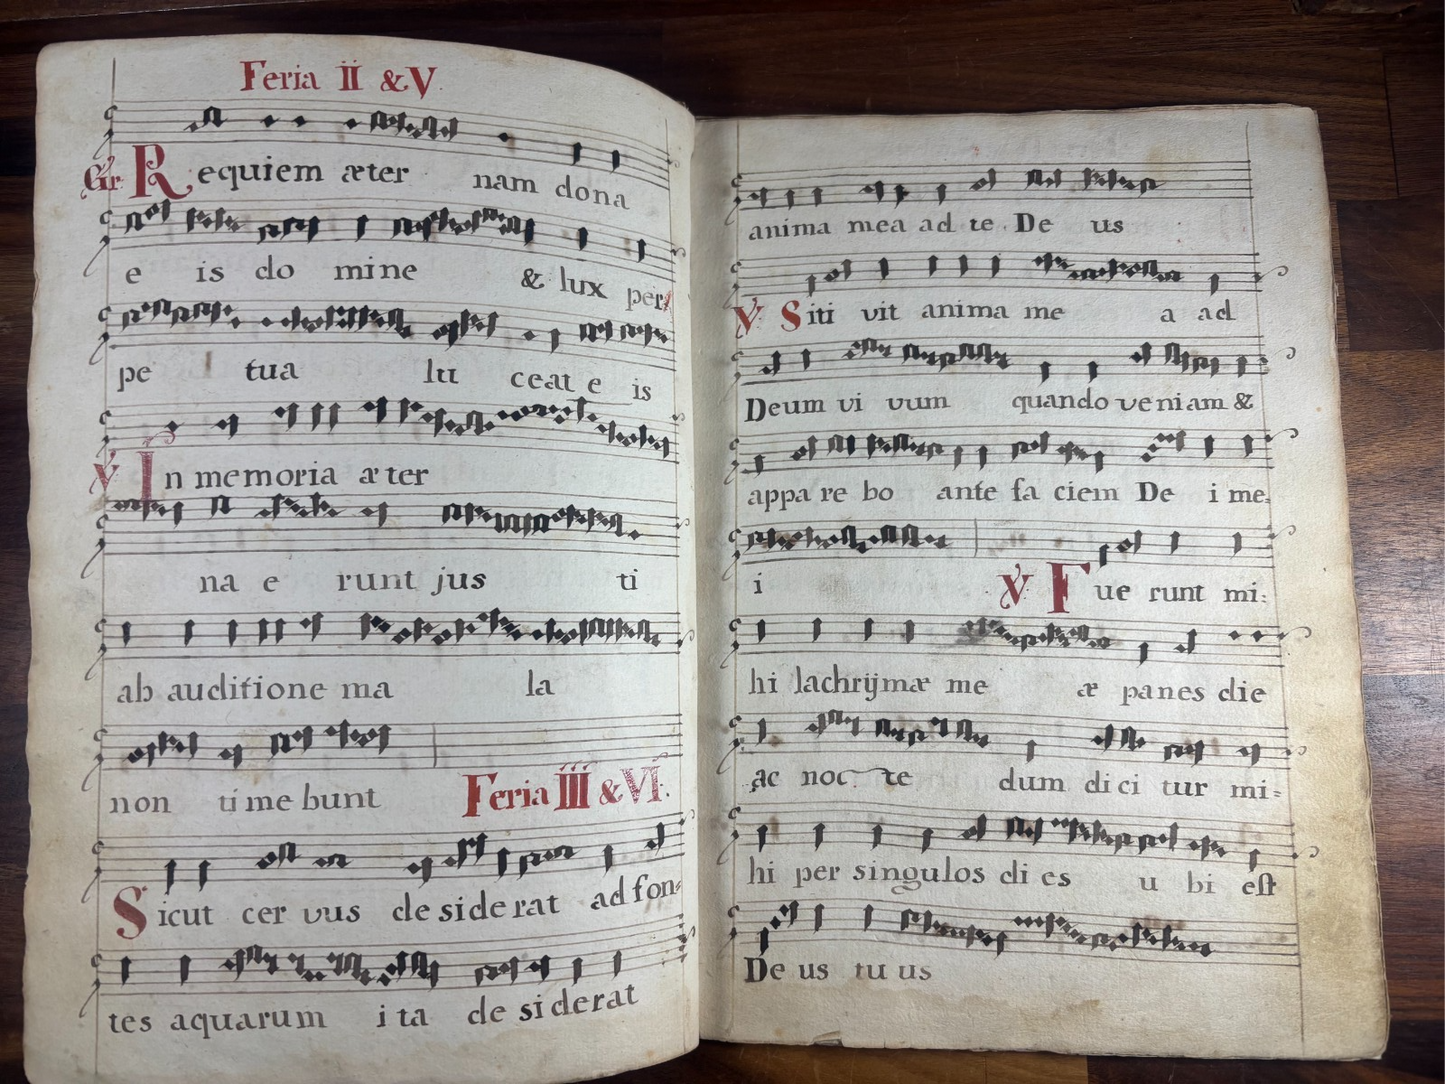 Feria II & V.
Gr. Requiem æter nam dona
e is do mine & lux per
pe tua lu ceat e is
℣ In memoria æ ter
na e runt jus ti
ab auditione ma la
non ti me bunt Feria III & VI.
Sicut cer vus de side rat ad fon=
tes aquarum i ta de si derat
anima mea ad te De us
℣. Siti vit anima me a ad
Deum vi vum quando veniam &
appa re bo ante fa ciem De i me.
i ℣ Fue runt mi:
hi lachrijmæ me æ panes die
ac noc te dum di ci tur mi=
hi per singulos di es u bi est
De us tu us